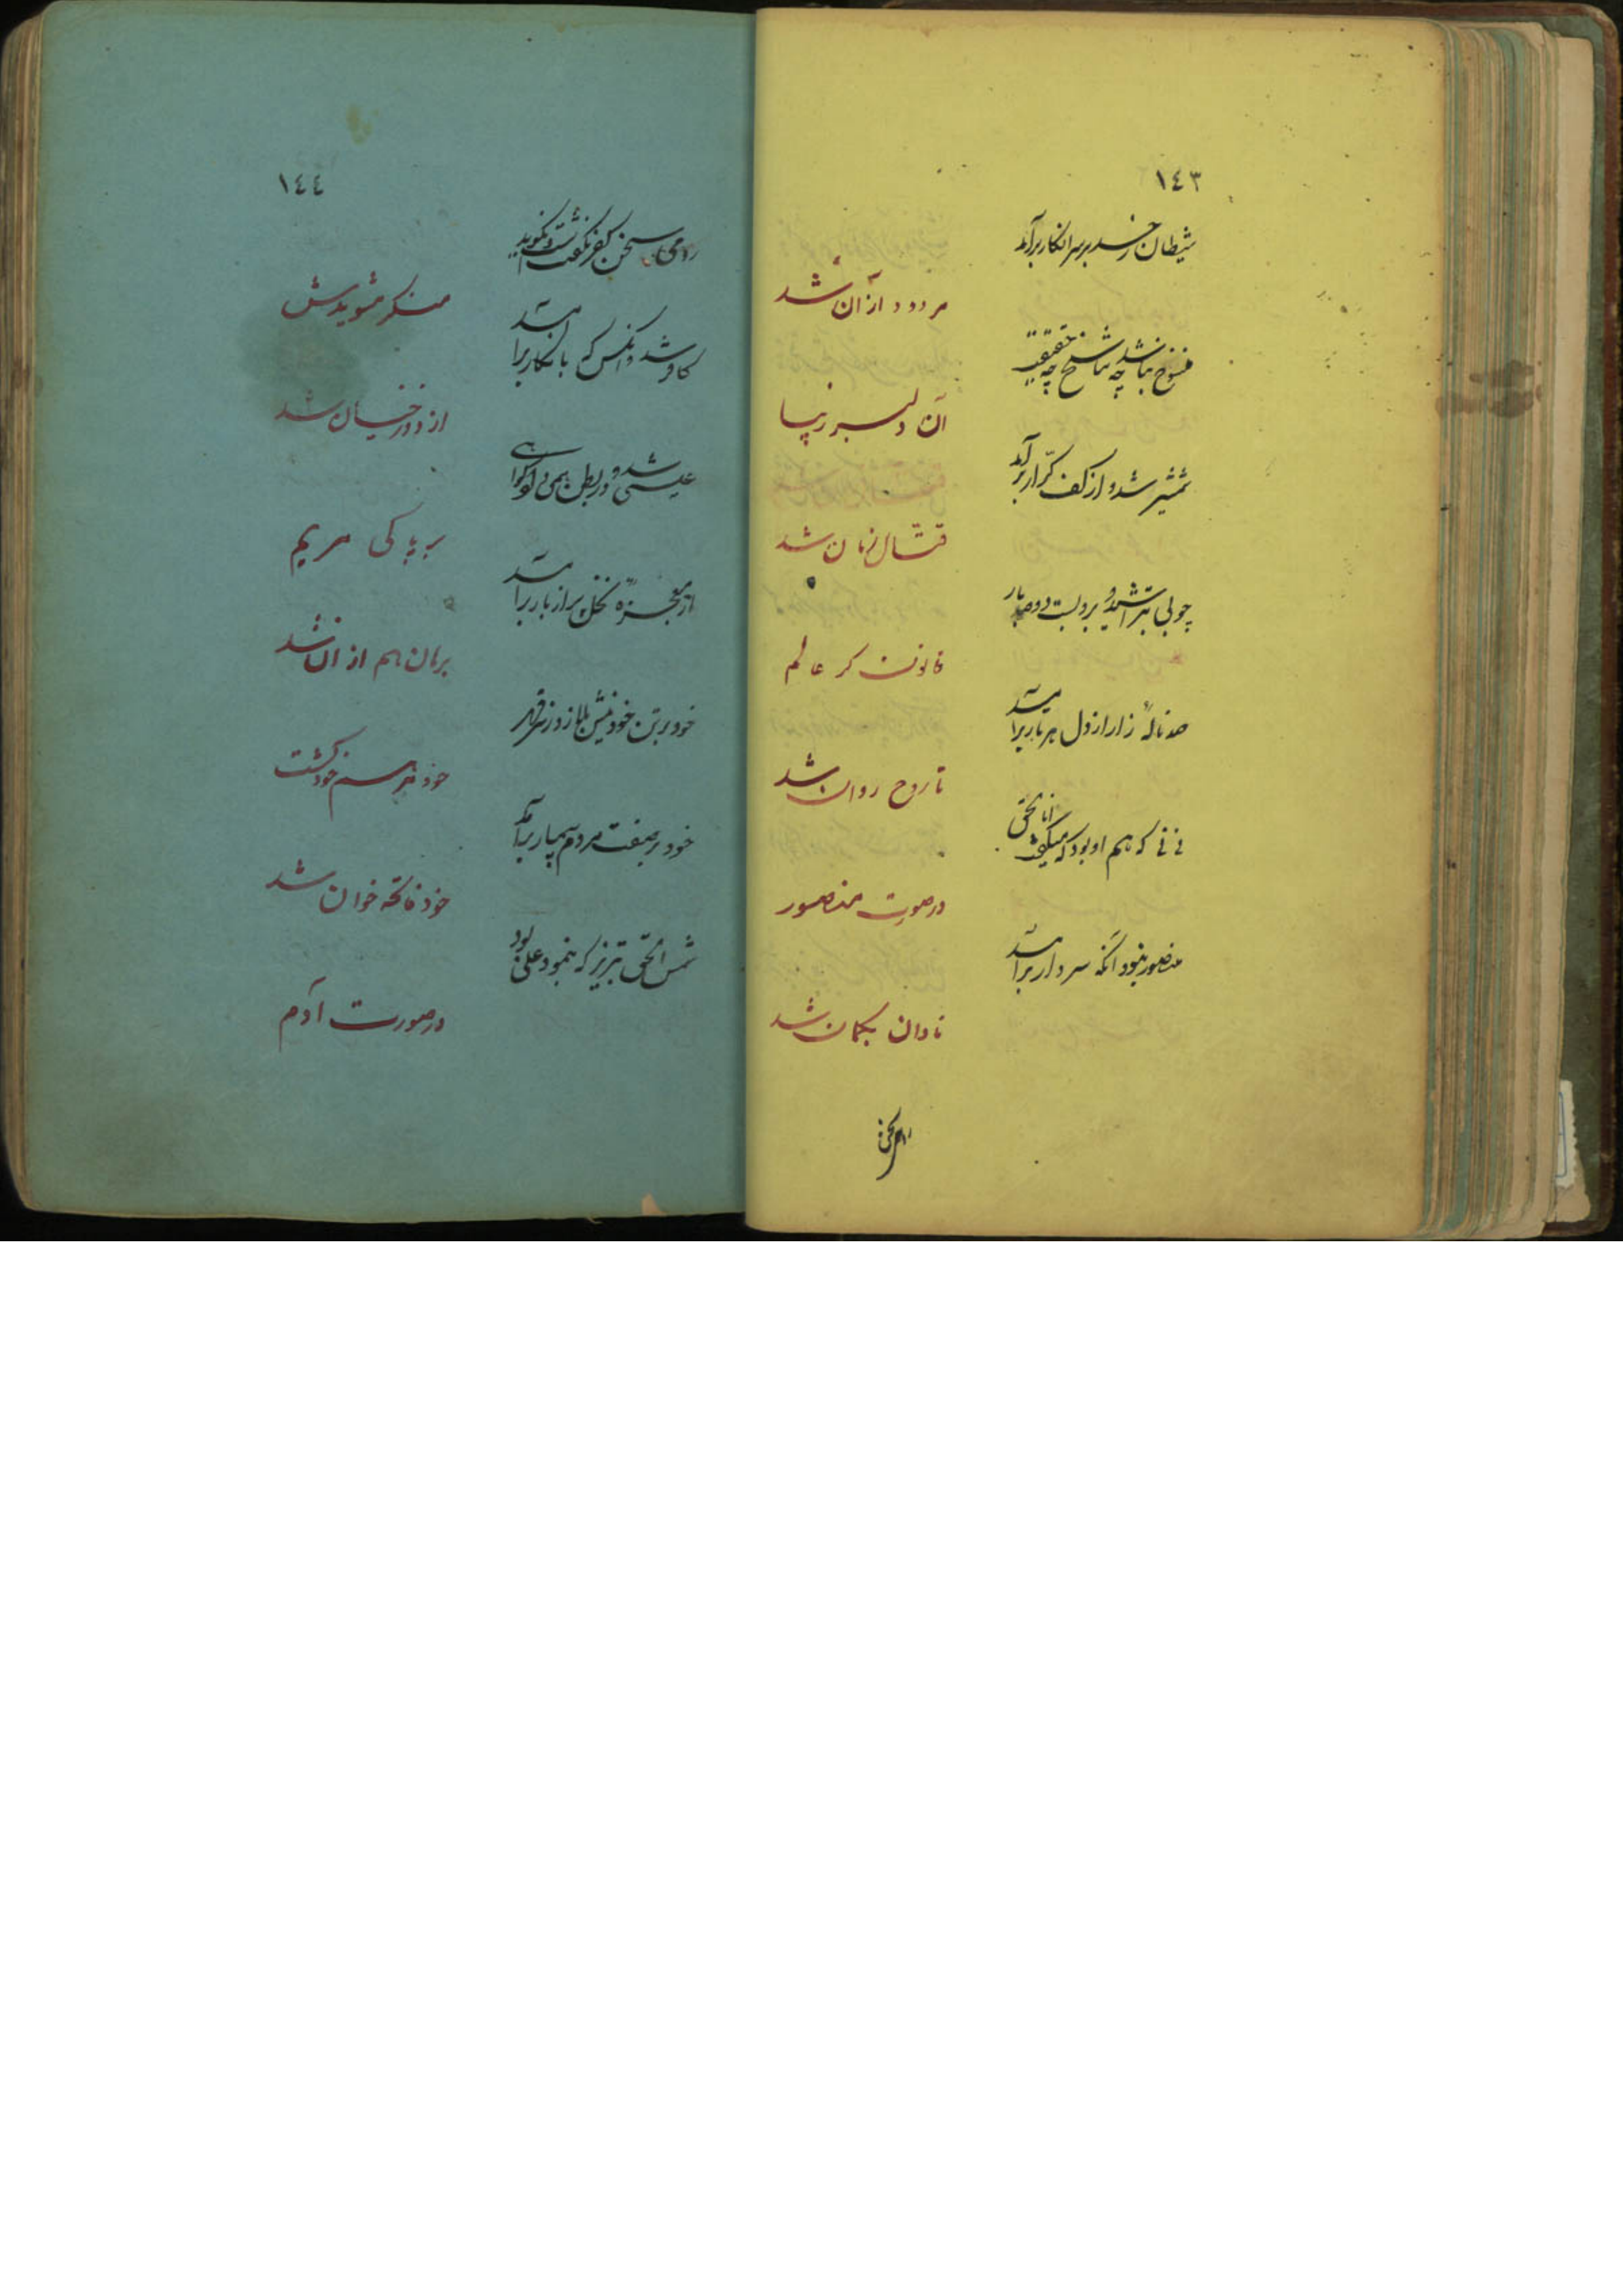 ١٤٣
شیطان ز حسد بر سر انکار برآمد
مردود ازان شد
منسوخ نباشد چه تناسخ چه حقیقت
آن دلبر زیبا
شمشیر شد و از کف کرّار برآمد
قتّال زمان شد
چوبی بتراشید و برو بست دو صد تار
قانون گر عالم
صد نالهٔ زار از دل هر تار برآمد
تا روح روان شد
نی نی که هم او بود که میگفت انا الحق
در صورت منصور
منصور نبود آنکه سر دار برآمد
نادان بگمان شد
رومی سخن
١٤٤
رومی سخن کفر نگفتست و نگوید
منکر مشویدش
کافر شد و آنکس که بانکار برآمد
از دوزخیان شد
عیسی شد و در بطن همی گواهی
بر پاکی مریم
از معجزه نخل پر از بار برآمد
برهان هم از آن شد
خود بر تن خود نیش بلا زد ز سر قهر
خود مرهم خود گشت
خود بر صفت مردم بیمار برآمد
خود فاتحه خوان شد
شمس الحق تبریز که بنمود علی بود
در صورت آدم